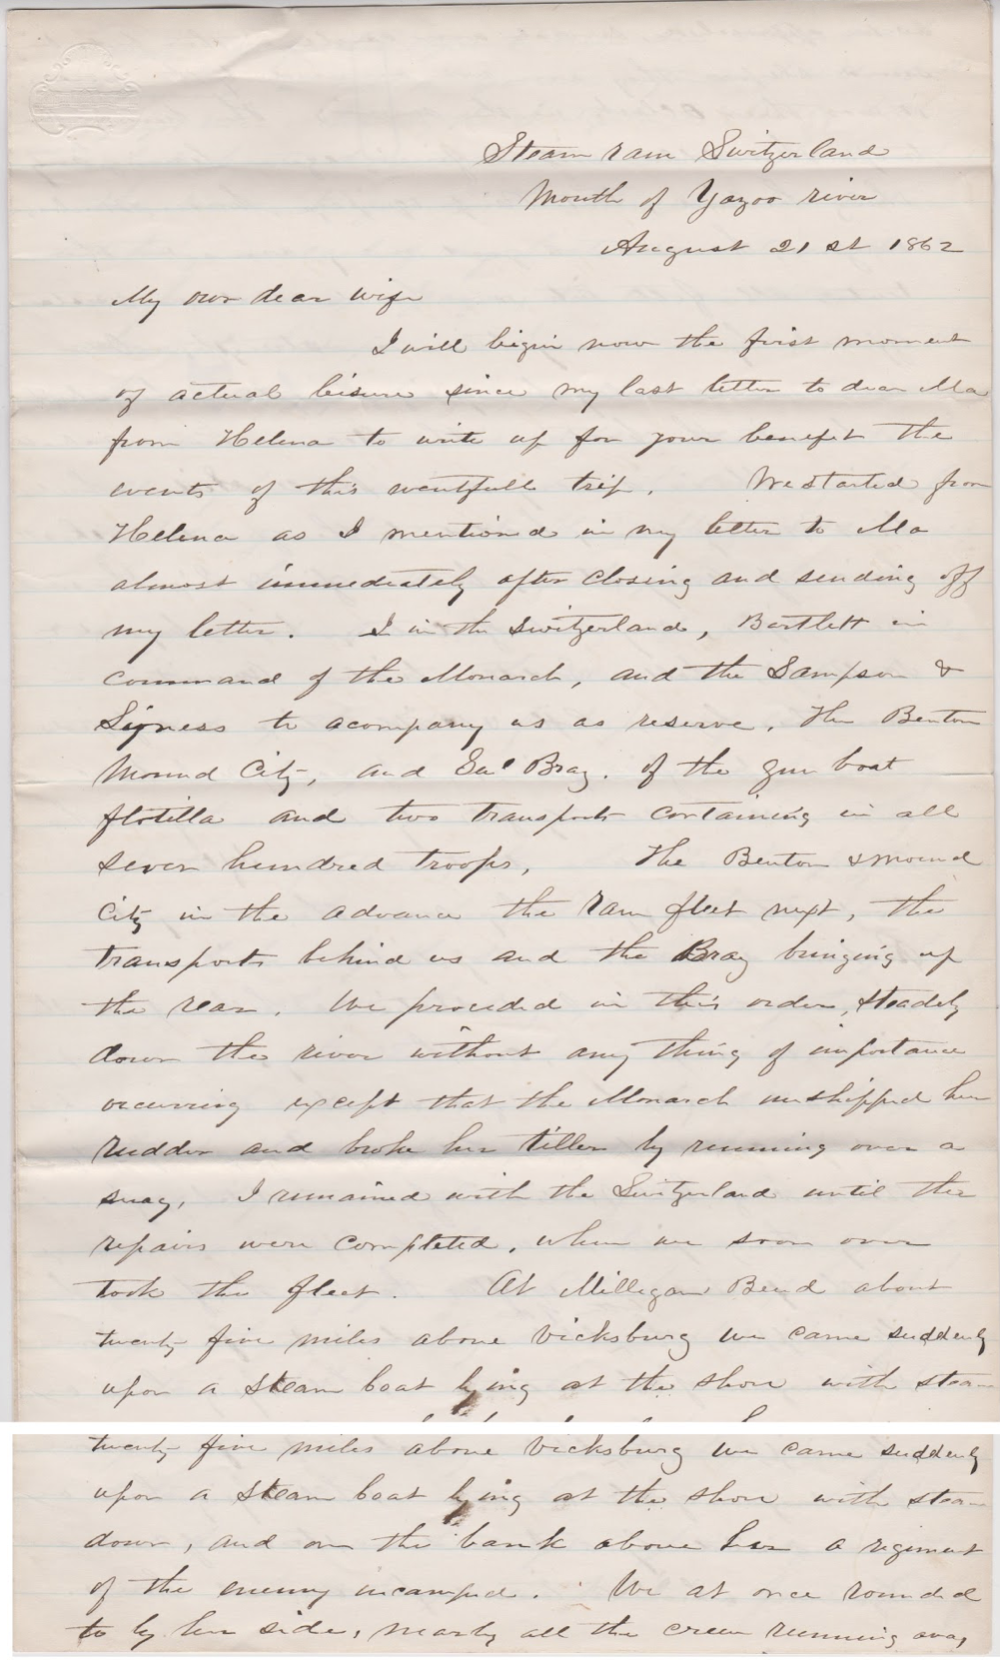 Steam ram Switzerland
Mouth of Yazoo river
August 21st 1862
My own dear wife
I will begin now the first moment
of actual leisure since my last letter to dear Ma
from Helena to write up for your benefit the
events of this eventfull trip. We started from
Helena as I mentioned in my letter to Ma
almost immediately after closing and sending off
my letter. I in the Switzerland, Bartlett in
command of the Monarch, and the Sampson &
Lioness to acompany us as reserve. The Benton
Mound City, and Genl Brag. of the gun boat
flotilla and two transports containing in all
seven hundred troops. The Benton & Mound
City in the advance the ram fleet next, the
transports behind us and the Brag bringing up
the rear. We proceded in this order, steadely
down the river without any thing of importance
occurring except that the Monarch unshipped her
rudder and broke her tiller by running over a
snag. I remained with the Switzerland until the
repairs were completed, when we soon over
took the fleet. At Milligan Bend about
twenty five miles above Vicksburg we came suddenly
upon a steam boat lying at the shore with steam
twenty five miles above Vicksburg we came suddenly
upon a steam boat lying at the shore with steam
down, and on the bank above her a regiment
of the enemy incamped. We at once rounded
to by her side, nearly all the crew running away